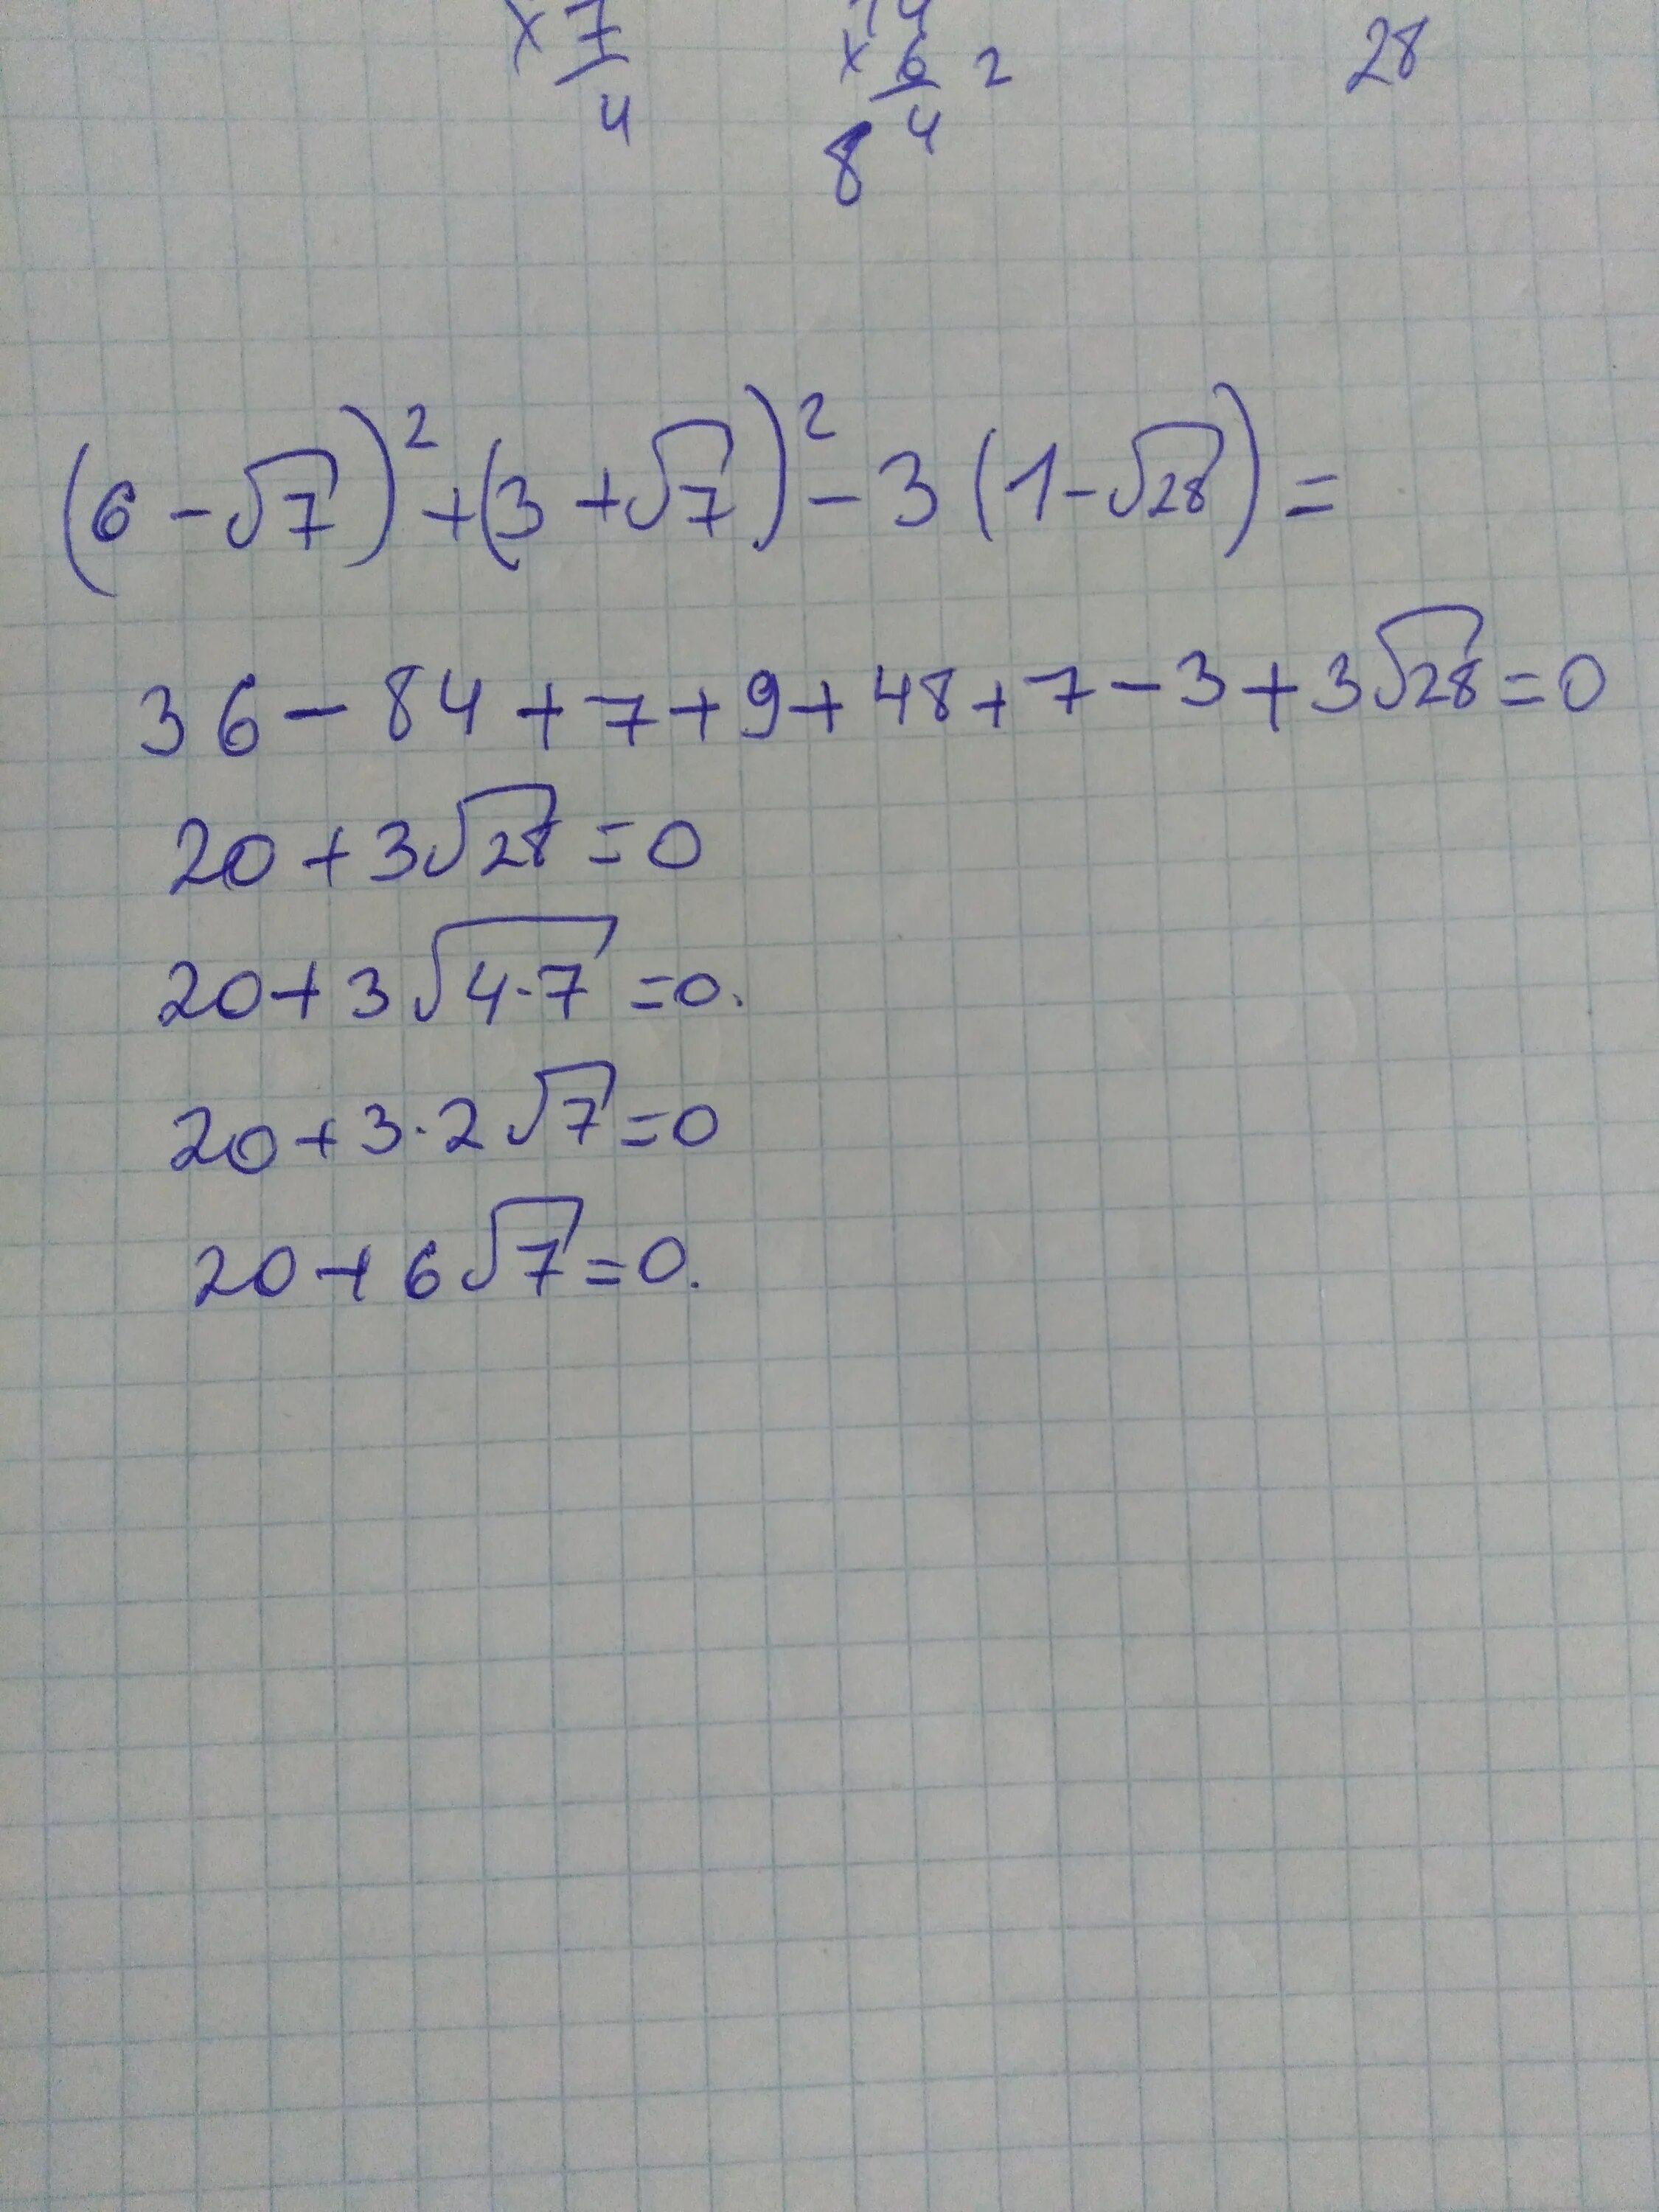 × 7 × 6 2 28
4 4
8
(6 - √7)² + (3 + √7)² - 3 (1 - √28) =
36 - 84 + 7 + 9 + 48 + 7 - 3 + 3√28 = 0
20 + 3√28 = 0
20 + 3√4·7 = 0.
20 + 3·2√7 = 0
20 + 6√7 = 0.